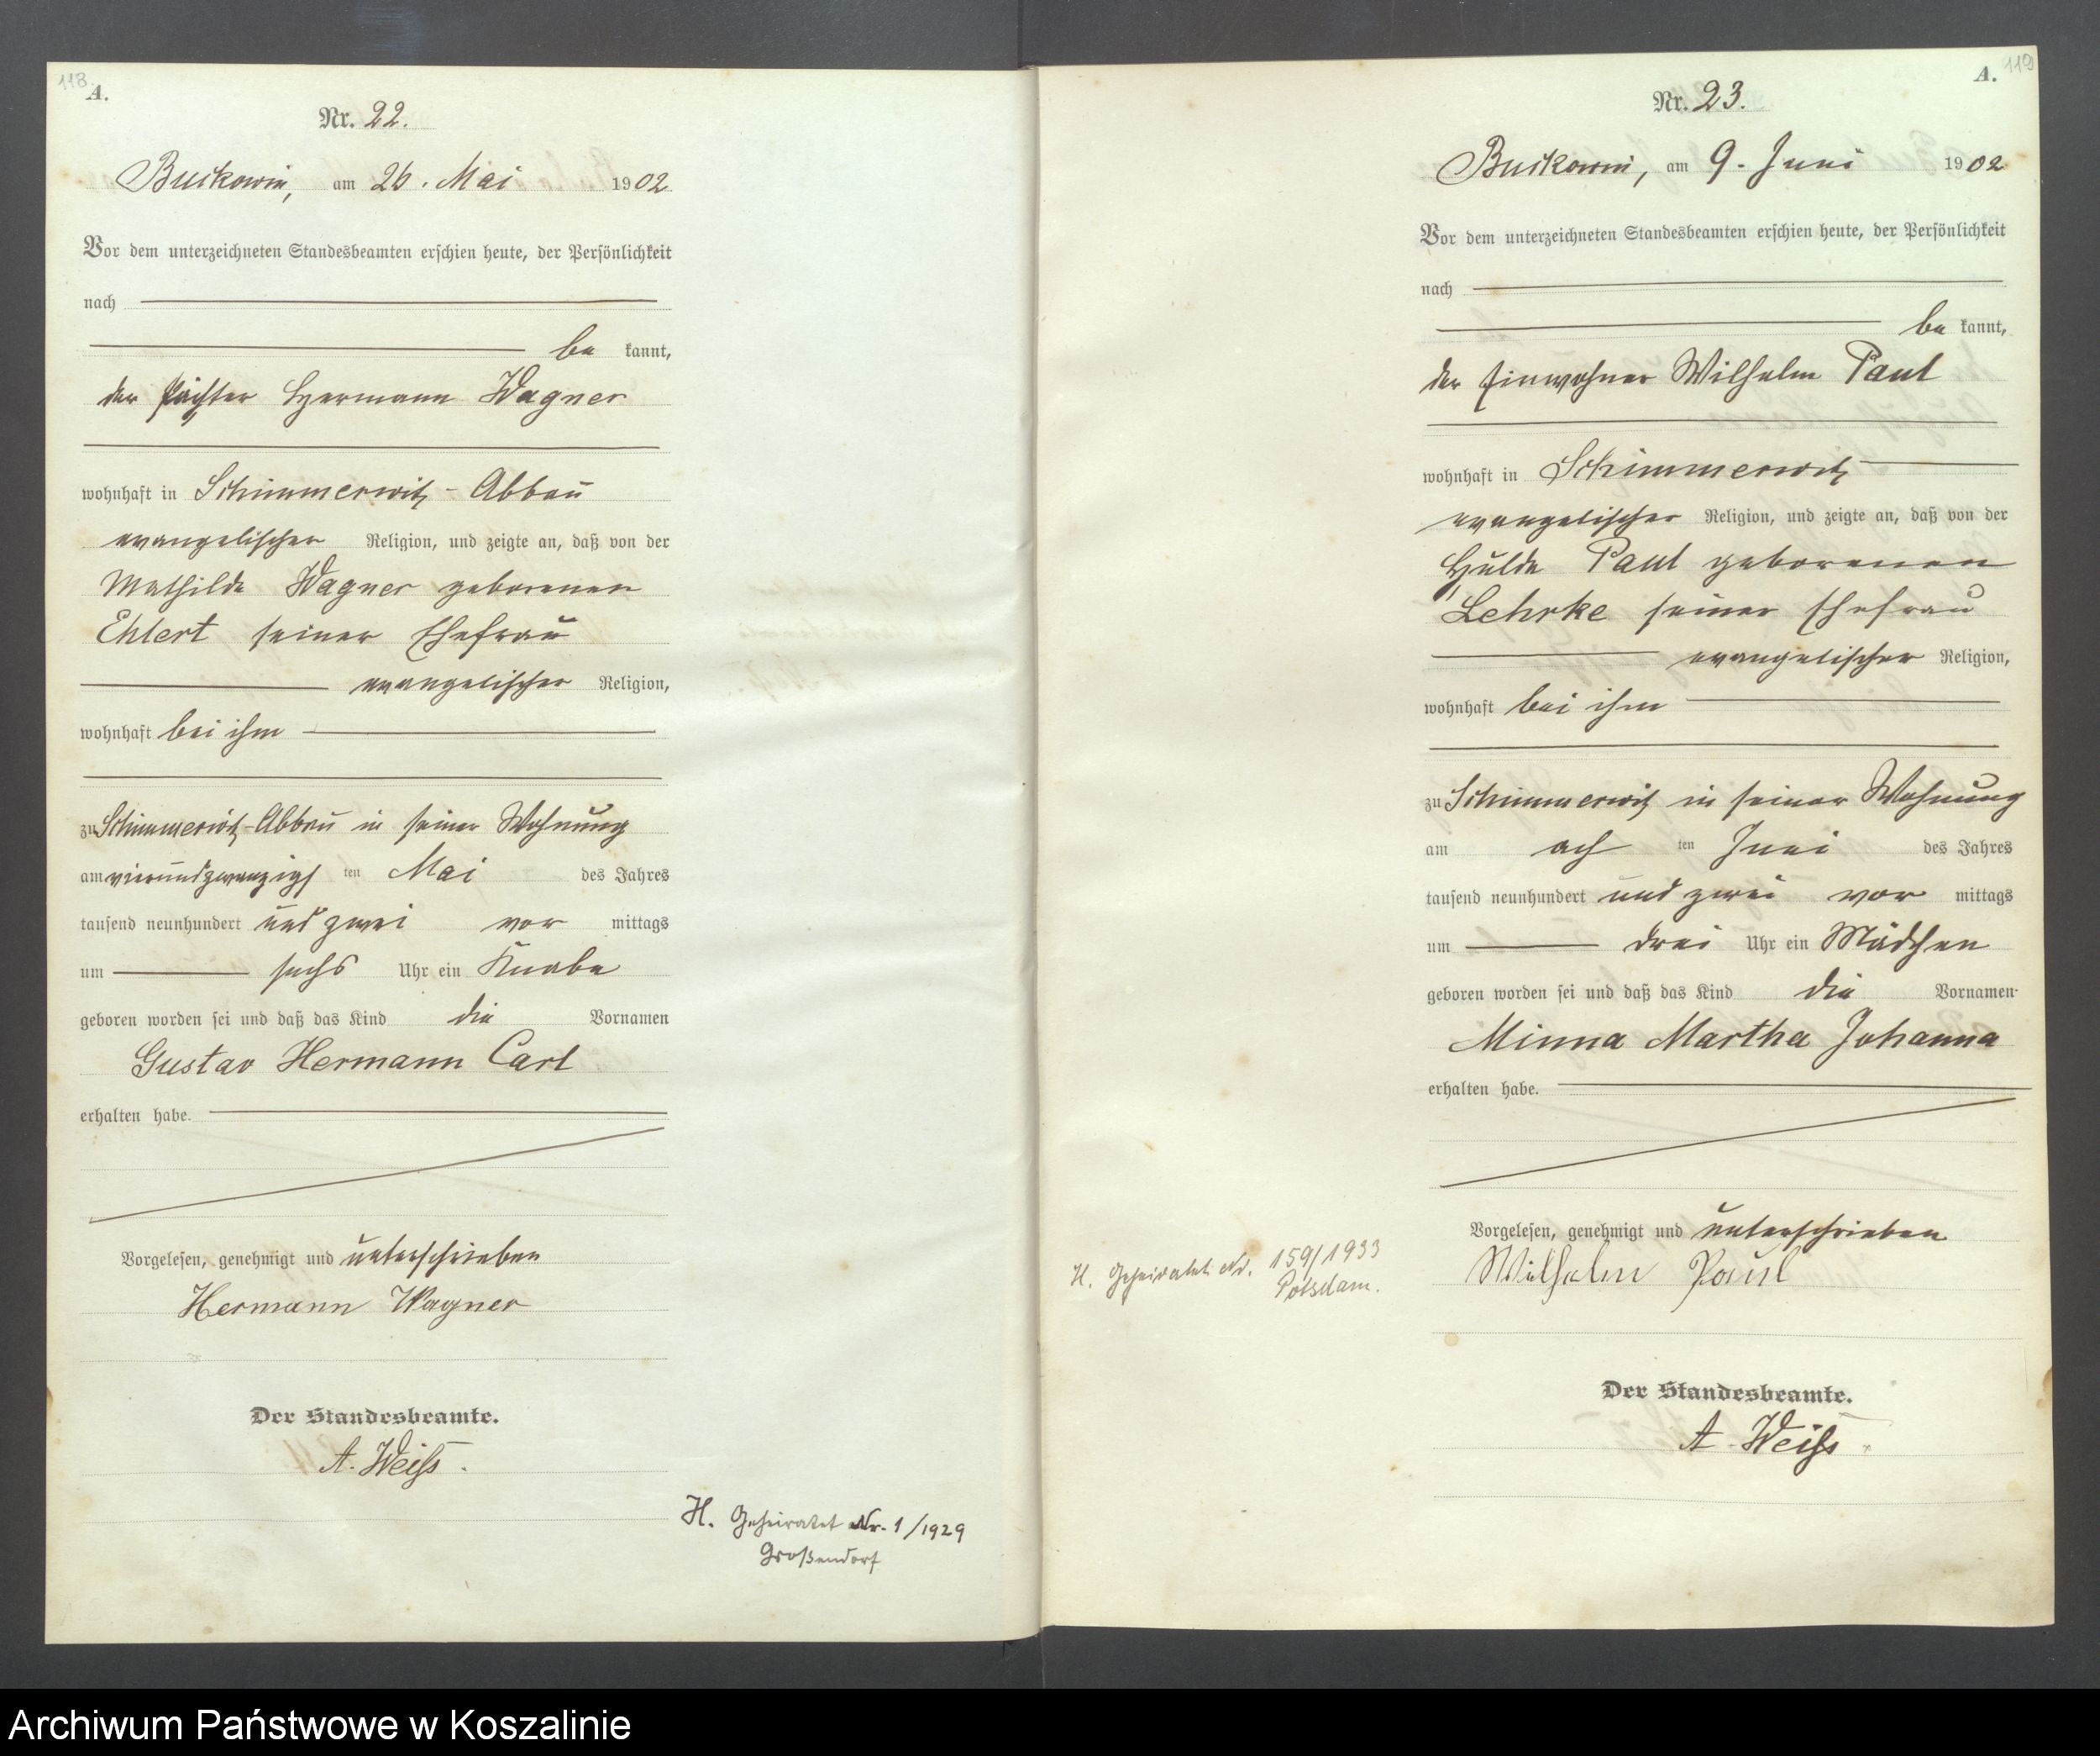 118
A.
Nr. 22.
Buckowin, am 26. Mai 1902
Vor dem unterzeichneten Standesbeamten erschien heute, der Persönlichkeit
nach
be kannt,
der Pächter Hermann Wagner
wohnhaft in Schimmerwitz-Abbau
evangelischer Religion, und zeigte an, daß von der
Mathilde Wagner geborenen
Ehlert seiner Ehefrau
evangelischer Religion,
wohnhaft bei ihm
zu Schimmerwitz-Abbau in seiner Wohnung
am vierundzwanzigs ten Mai des Jahres
tausend neunhundert und zwei vor mittags
um sechs Uhr ein Knabe
geboren worden sei und daß das Kind die Vornamen
Gustav Hermann Carl
erhalten habe.
Vorgelesen, genehmigt und unterschrieben
Hermann Wagner
Der Standesbeamte.
A. Weiß.
H. Geheiratet Nr. 1/1929
Großendorf
119
A.
Nr. 23.
Buckowin, am 9. Juni 1902
Vor dem unterzeichneten Standesbeamten erschien heute, der Persönlichkeit
nach
be kannt,
der Einwohner Wilhelm Paul
wohnhaft in Schimmerwitz
evangelischer Religion, und zeigte an, daß von der
Hulda Paul geborenen
Lehrke seiner Ehefrau
evangelischer Religion,
wohnhaft bei ihm
zu Schimmerwitz in seiner Wohnung
am ach ten Juni des Jahres
tausend neunhundert und zwei vor mittags
um drei Uhr ein Mädchen
geboren worden sei und daß das Kind die Vornamen
Minna Martha Johanna
erhalten habe.
Vorgelesen, genehmigt und unterschrieben
Wilhelm Paul
H. Geheiratet Nr. 159/1933
Potsdam.
Der Standesbeamte.
A. Weiß.
Archiwum Państwowe w Koszalinie